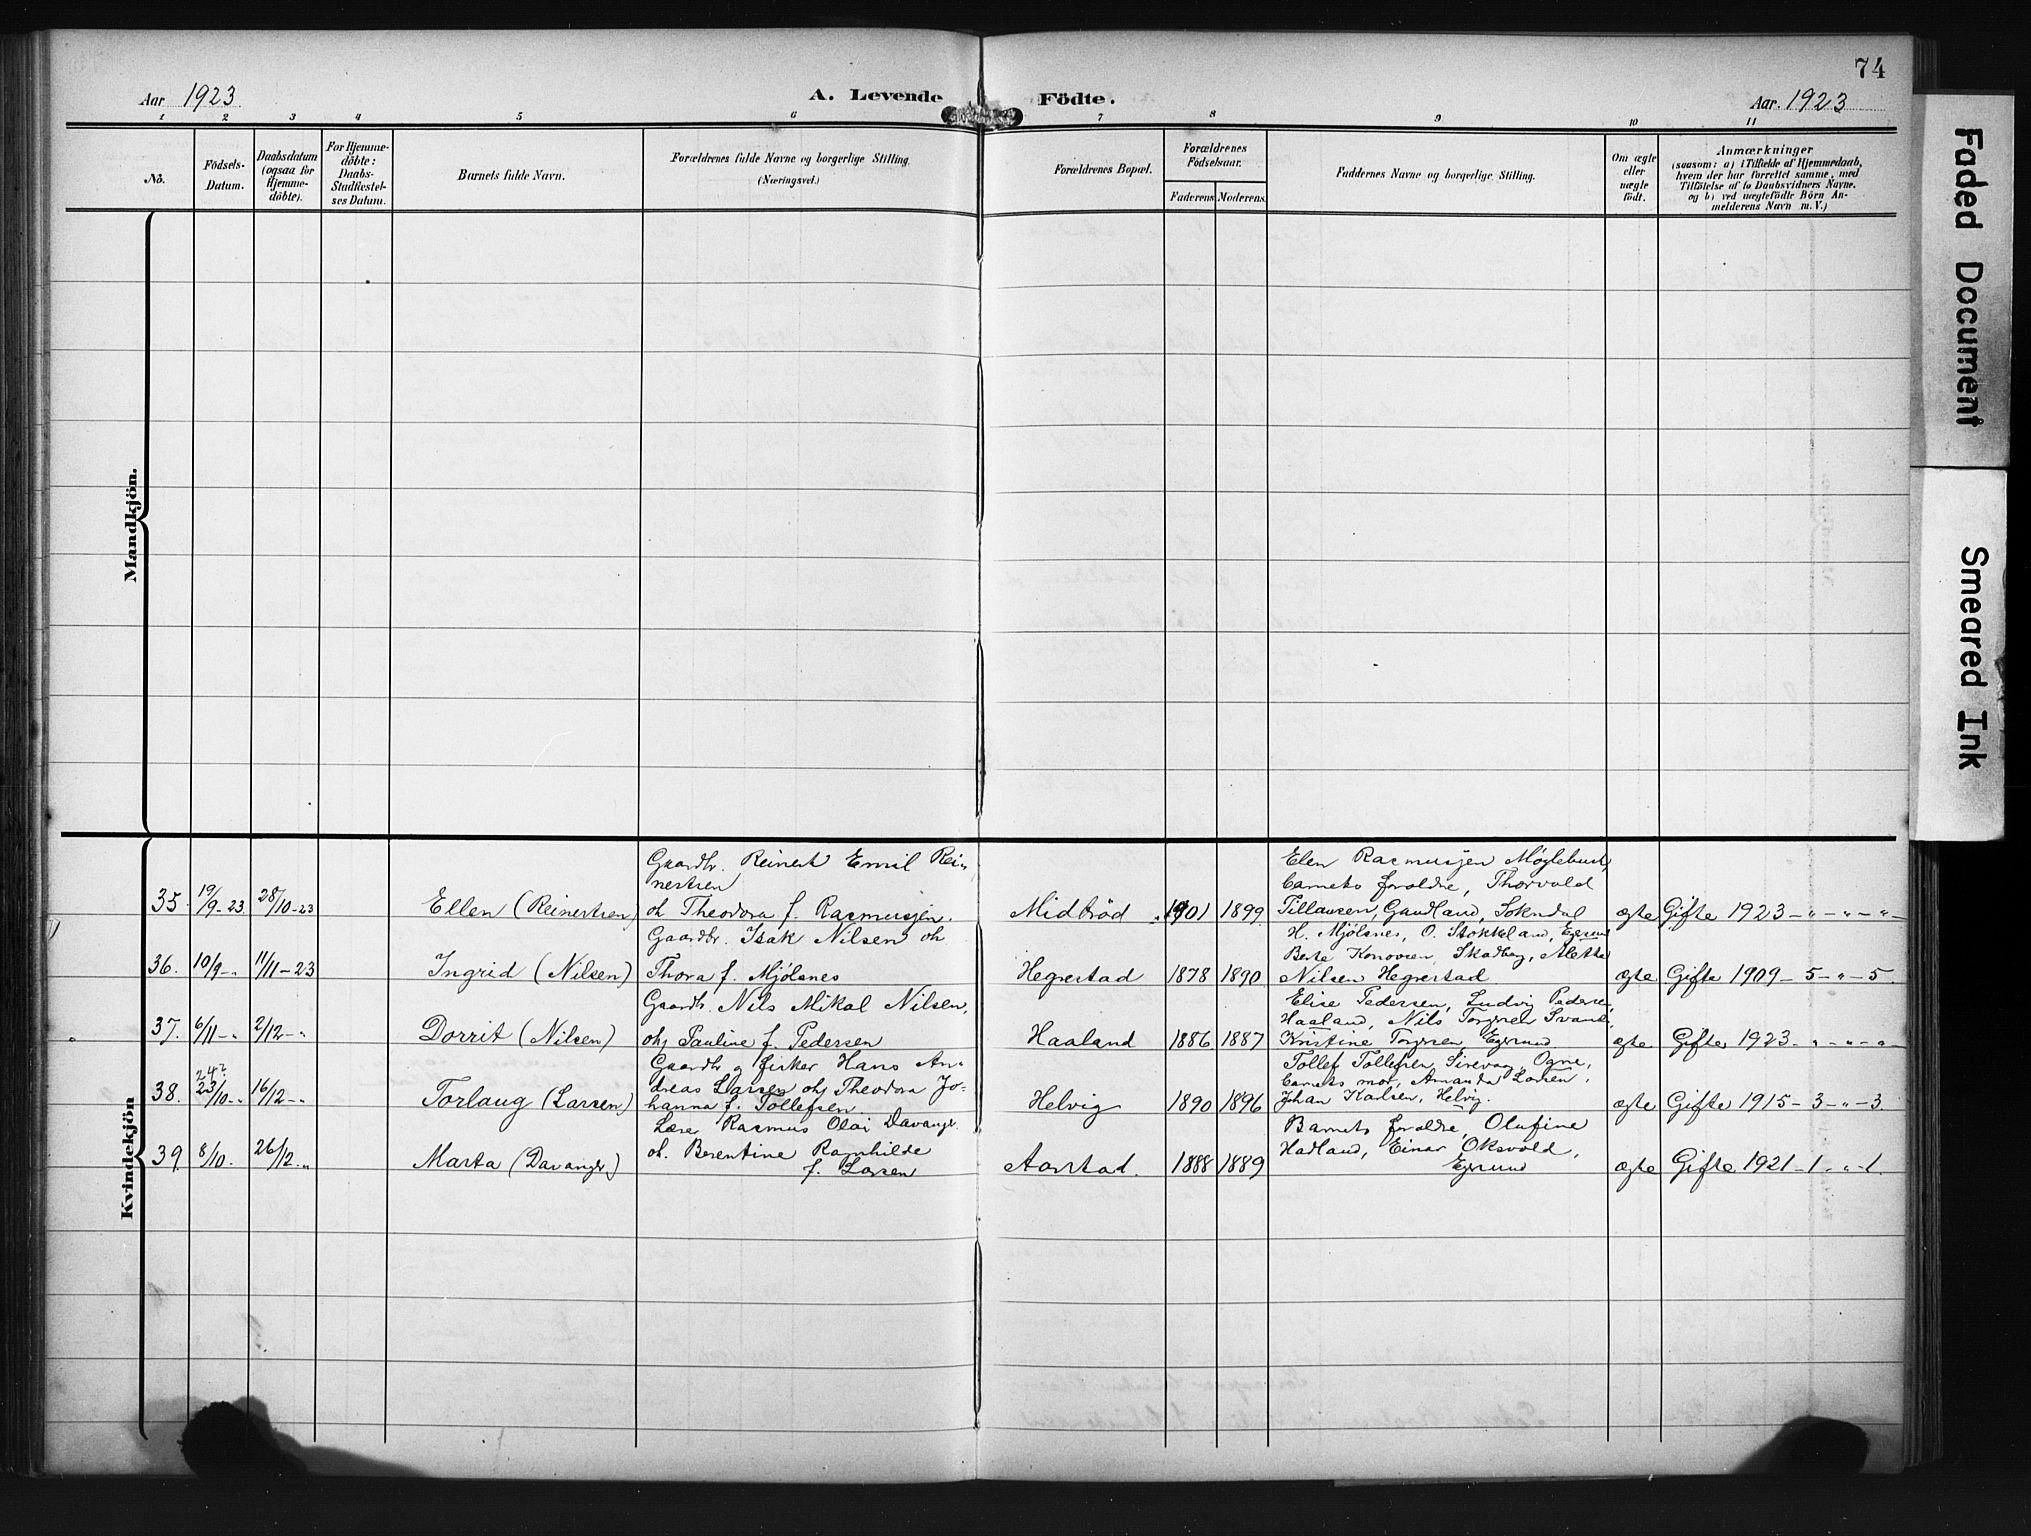 74
Aar 1923
A. Levende Födte.
Aar. 1923
1 2 3 4 5 6 7 8 9 10 11
No.
Födsels-
Datum.
Daabsdatum
(ogsaa for
Hjemme-
döbte).
For Hjemme-
döbte:
Daabs-
Stadfæstel-
ses Datum.
Barnets fulde Navn.
Forældrenes fulde Navne og borgerlige Stilling.
(Næringsvei.)
Forældrenes Bopæl.
Forældrenes
Födselsaar.
Faderens Moderens.
Faddernes Navne og borgerlige Stilling.
Om ægte
eller
uægte
födt.
Anmærkninger
(saasom: a) i Tilfælde af Hjemmedaab,
hvem der har forrettet samme, med
Tilföielse af to Daabsvidners Navne.
og b) ved uægtefödte Börn An-
melderens Navn m. V.)
Mandkjön.
Kvindekjön
Gaardbr. Reinert Emil Rei-
nertsen
35. 19/9-23 28/10-23 Ellen (Reinertsen) oh Theodora f. Rasmussen. Midbröd 1901 1899
Elen Rasmussen Møglebust,
barnets foreldre, Thorvald
Tillausen, Gaudland, Sokndal
ægte Gifte 1923 - " - " - " -
Gaardbr. Isak Nilsen oh
36. 10/9-" 11/11-23 Ingrid (Nilsen) Thora f. Mjölsnes Hegrestad 1878 1890
H. Mjölsnes, O. Stokkeland, Egersund
Berte Konovsen, Skadberg, Alette
Nilsen Hegrestad
ægte Gifte 1909 - 5 - " - 5.
Gaardbr. Nils Mikal Nilsen,
37. 6/11-" 2/12-" Dorrit (Nilsen) oh Pauline f. Pedersen Haaland 1886 1887
Elise Pedersen, Ludvig Pedersen
Haaland, Nils Torgersen Svanes,
Kristine Torgersen Egersund
ægte. Gifte 1923 - " - " - " -
Gaardbr. og fisker Hans An-
24?
38. 23/10-" 16/12-" Torlaug (Larsen) dreas Larsen oh Theodora Jo-
hanna f. Tollefsen Helvig 1890 1896
Tollef Tollefsen Sirevaag, Ogne,
barnets mor, Amanda Larsen,
Johan Karlsen, Helvig.
ægte Gifte 1915 - 3 - " - 3.
Lærer Rasmus Olai Davanger
39. 8/10. 26/12-" Marta (Davanger) oh. Berentine Ragnhilde
f. Larsen Aarstad. 1888 1889
Barnets foreldre, Olufine
Hadland, Einar Oksvold,
Egersund
ægte Gifte 1921 - 1 - " - 1.
Faded Document
Smeared Ink